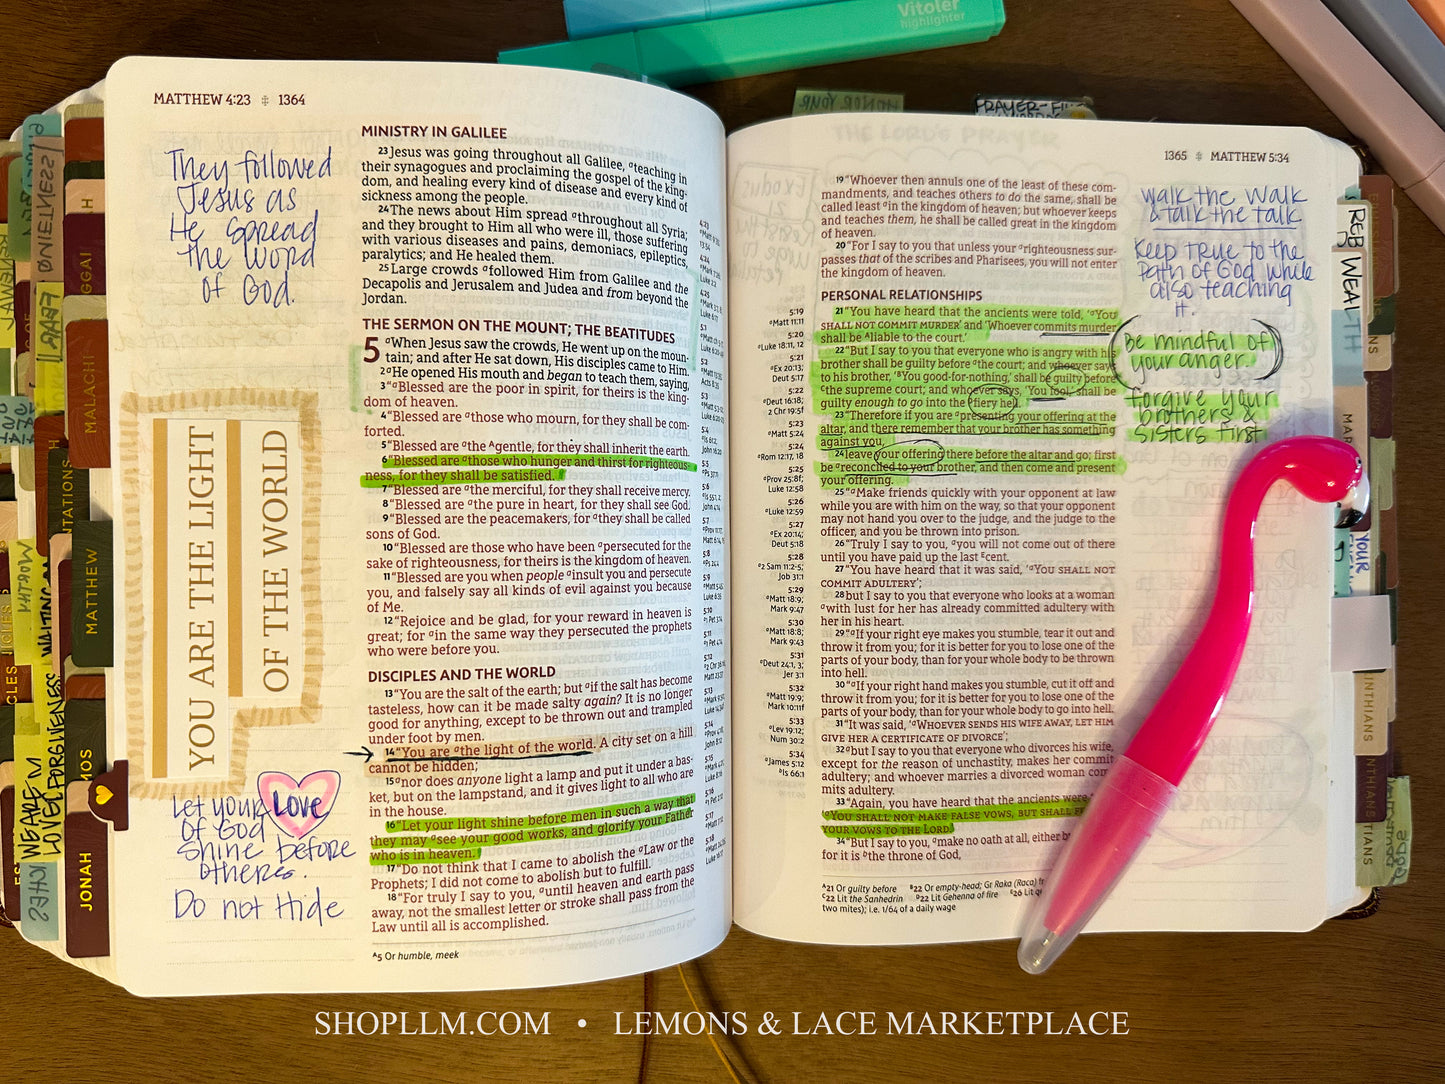 Vitoler
highlighter
MATTHEW 4:23 ⁜ 1364
They followed
Jesus as
He Spread
the word
of God.
YOU ARE THE LIGHT
OF THE WORLD
Let your Love
of God
Shine before
others.
Do not Hide
MINISTRY IN GALILEE
23 Jesus was going throughout all Galilee, ᵃteaching in
their synagogues and proclaiming the gospel of the king-
dom, and healing every kind of disease and every kind of
sickness among the people.
24 The news about Him spread ᵃthroughout all Syria;
and they brought to Him all who were ill, those suffering
with various diseases and pains, demoniacs, epileptics,
paralytics; and He healed them.
25 Large crowds ᵃfollowed Him from Galilee and the
Decapolis and Jerusalem and Judea and from beyond the
Jordan.
THE SERMON ON THE MOUNT; THE BEATITUDES
5 ᵃWhen Jesus saw the crowds, He went up on the moun-
tain; and after He sat down, His disciples came to Him.
2 ᵃHe opened His mouth and began to teach them, saying,
3 “ᵃBlessed are the poor in spirit, for theirs is the king-
dom of heaven.
4 “Blessed are ᵃthose who mourn, for they shall be com-
forted.
5 “Blessed are ᵃthe ᴬgentle, for they shall inherit the earth.
6 “Blessed are ᵃthose who hunger and thirst for righteous-
ness, for they shall be satisfied.
7 “Blessed are ᵃthe merciful, for they shall receive mercy.
8 “Blessed are ᵃthe pure in heart, for they shall see God.
9 “Blessed are the peacemakers, for ᵃthey shall be called
sons of God.
10 “Blessed are those who have been ᵃpersecuted for the
sake of righteousness, for theirs is the kingdom of heaven.
11 “Blessed are you when people ᵃinsult you and persecute
you, and falsely say all kinds of evil against you because
of Me.
12 “Rejoice and be glad, for your reward in heaven is
great; for ᵃin the same way they persecuted the prophets
who were before you.
DISCIPLES AND THE WORLD
13 “You are the salt of the earth; but ᵃif the salt has become
tasteless, how can it be made salty again? It is no longer
good for anything, except to be thrown out and trampled
under foot by men.
14 “You are ᵃthe light of the world. A city set on a hill
cannot be hidden;
15 ᵃnor does anyone light a lamp and put it under a bas-
ket, but on the lampstand, and it gives light to all who are
in the house.
16 “Let your light shine before men in such a way that
they may ᵃsee your good works, and glorify your Father
who is in heaven.
17 “Do not think that I came to abolish the ᵃLaw or the
Prophets; I did not come to abolish but to fulfill.
18 “For truly I say to you, ᵃuntil heaven and earth pass
away, not the smallest letter or stroke shall pass from the
Law until all is accomplished.
ᴬ5 Or humble, meek
1365 ⁜ MATTHEW 5:34
19 “Whoever then annuls one of the least of these com-
mandments, and teaches others to do the same, shall be
called least ᵃin the kingdom of heaven; but whoever keeps
and teaches them, he shall be called great in the kingdom
of heaven.
20 “For I say to you that unless your ᵃrighteousness sur-
passes that of the scribes and Pharisees, you will not enter
the kingdom of heaven.
PERSONAL RELATIONSHIPS
21 “You have heard that the ancients were told, ‘ᵃYOU
SHALL NOT COMMIT MURDER’ and ‘Whoever commits murder
shall be ᴬliable to the court.’
22 “But I say to you that everyone who is angry with his
brother shall be guilty before ᵃthe court; and whoever says
to his brother, ‘ᴮYou good-for-nothing,’ shall be guilty before
ᶜthe supreme court; and whoever says, ‘You fool,’ shall be
guilty enough to go into the fiery hell.
23 “Therefore if you are ᵃpresenting your offering at the
altar, and there remember that your brother has something
against you,
24 leave your offering there before the altar and go; first
be ᵃreconciled to your brother, and then come and present
your offering.
25 “ᵃMake friends quickly with your opponent at law
while you are with him on the way, so that your opponent
may not hand you over to the judge, and the judge to the
officer, and you be thrown into prison.
26 “Truly I say to you, ᵃyou will not come out of there
until you have paid up the last ᴱcent.
27 “You have heard that it was said, ‘ᵃYOU SHALL NOT
COMMIT ADULTERY’;
28 but I say to you that everyone who looks at a woman
ᵃwith lust for her has already committed adultery with
her in his heart.
29 “ᵃIf your right eye makes you stumble, tear it out and
throw it from you; for it is better for you to lose one of the
parts of your body, than for your whole body to be thrown
into hell.
30 “ᵃIf your right hand makes you stumble, cut it off and
throw it from you; for it is better for you to lose one of the
parts of your body, than for your whole body to go into hell.
31 “It was said, ‘ᵃWHOEVER SENDS HIS WIFE AWAY, LET HIM
GIVE HER A CERTIFICATE OF DIVORCE’;
32 ᵃbut I say to you that everyone who divorces his wife,
except for the reason of unchastity, makes her commit
adultery; and whoever marries a divorced woman com-
mits adultery.
33 “Again, you have heard that the ancients were
‘ᵃYOU SHALL NOT MAKE FALSE VOWS, BUT SHALL
YOUR VOWS TO THE LORD.’
34 “But I say to you, ᵃmake no oath at all, either b
for it is ᵇthe throne of God,
5:19
ᵃMatt 11:11
5:20
ᵃLuke 18:11, 12
5:21
ᵃEx 20:13;
Deut 5:17
5:22
ᵃDeut 16:18;
2 Chr 19:5f
5:23
ᵃMatt 5:24
5:24
ᵃRom 12:17, 18
5:25
ᵃProv 25:8f;
Luke 12:58
5:26
ᵃLuke 12:59
5:27
ᵃEx 20:14;
Deut 5:18
5:28
ᵃ2 Sam 11:2-5;
Job 31:1
5:29
ᵃMatt 18:9;
Mark 9:47
5:30
ᵃMatt 18:8;
Mark 9:43
5:31
ᵃDeut 24:1, 3;
Jer 3:1
5:32
ᵃMatt 19:9;
Mark 10:11f
5:33
ᵃLev 19:12;
Num 30:2
5:34
ᵃJames 5:12
ᵇIs 66:1
ᴬ21 Or guilty before ᴮ22 Or empty-head; Gr Raka (Raca) f
ᶜ22 Lit the Sanhedrin ᴰ22 Lit Gehenna of fire ᴱ26 Lit q
two mites); i.e. 1/64 of a daily wage
Walk the Walk
& talk the talk
Keep true to the
path of God while
also teaching
it.
Be mindful of
your anger
forgive your
brothers &
sisters first
MALACHI
MATTHEW
JONAH
REB WEALTH
SHOPLLM.COM • LEMONS & LACE MARKETPLACE